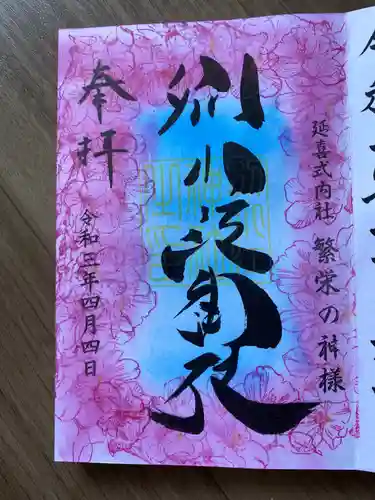 延喜式内社 繁栄の神様
別小江神社
奉拝
令和三年四月四日